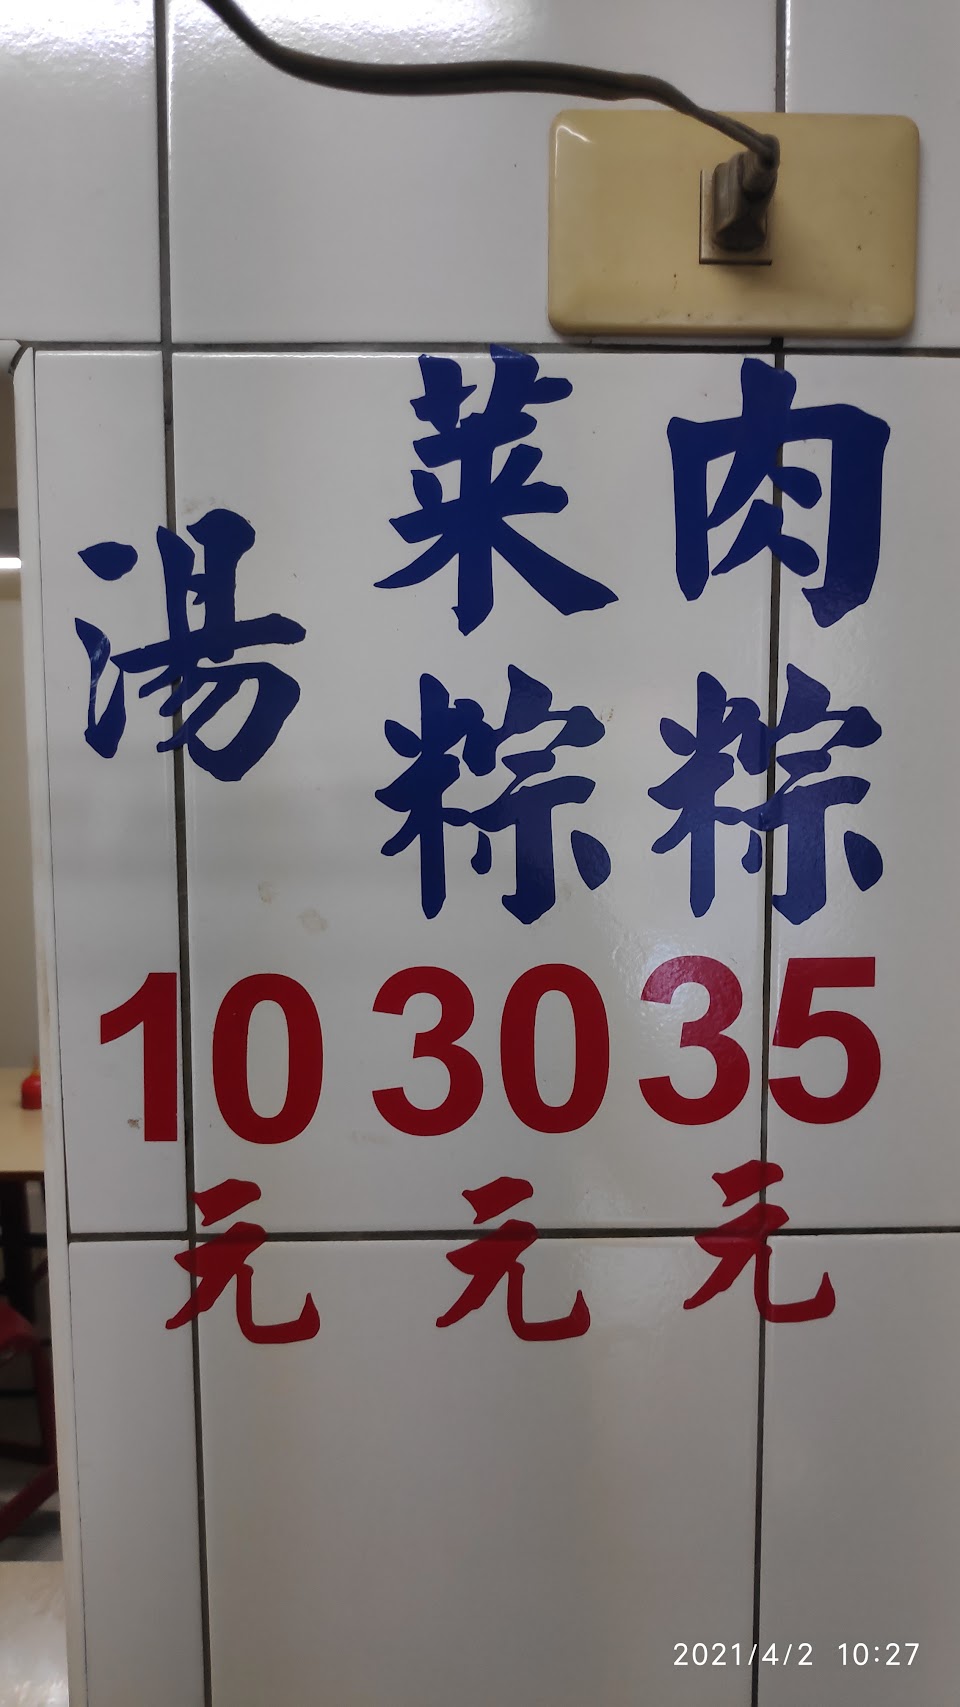 肉粽35元
菜粽30元
湯10元
2021/4/2 10:27